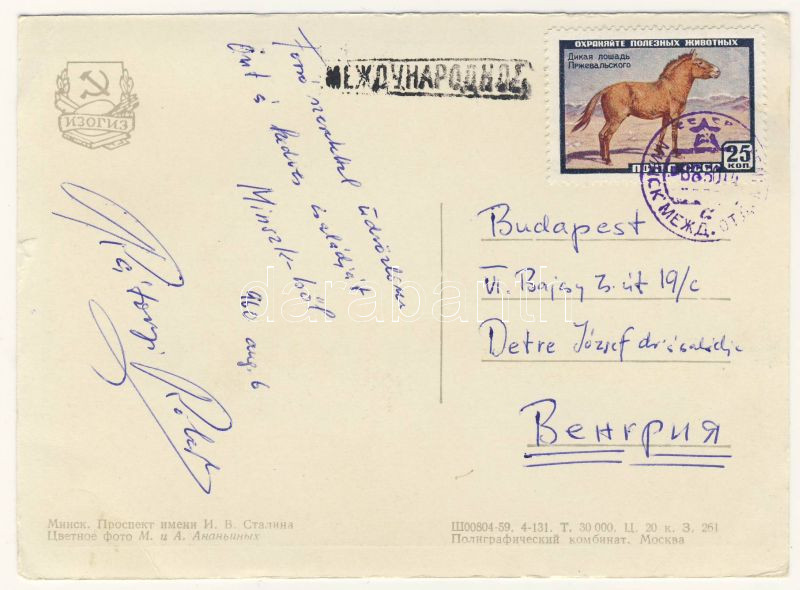 ИЗОГИЗ
МЕЖДУНАРОДНОЕ
ОХРАНЯЙТЕ ПОЛЕЗНЫХ ЖИВОТНЫХ
Дикая лошадь
Пржевальского
25
КОП
ПОЧТА СССР
МИНСК МЕЖД. ОТД.
üdvözlöm
Önt és kedves családját
Minszk-ből
960 aug. 6
Budapest
VI. Bajcsy Zs. út 19/c
Detre József dr és családja
Венгрия
darabanth
Минск. Проспект имени И. В. Сталина
Цветное фото М. и А. Ананьиных
Ш00804-59. 4-131. Т. 30 000. Ц. 20 к. З. 261
Полиграфический комбинат. Москва